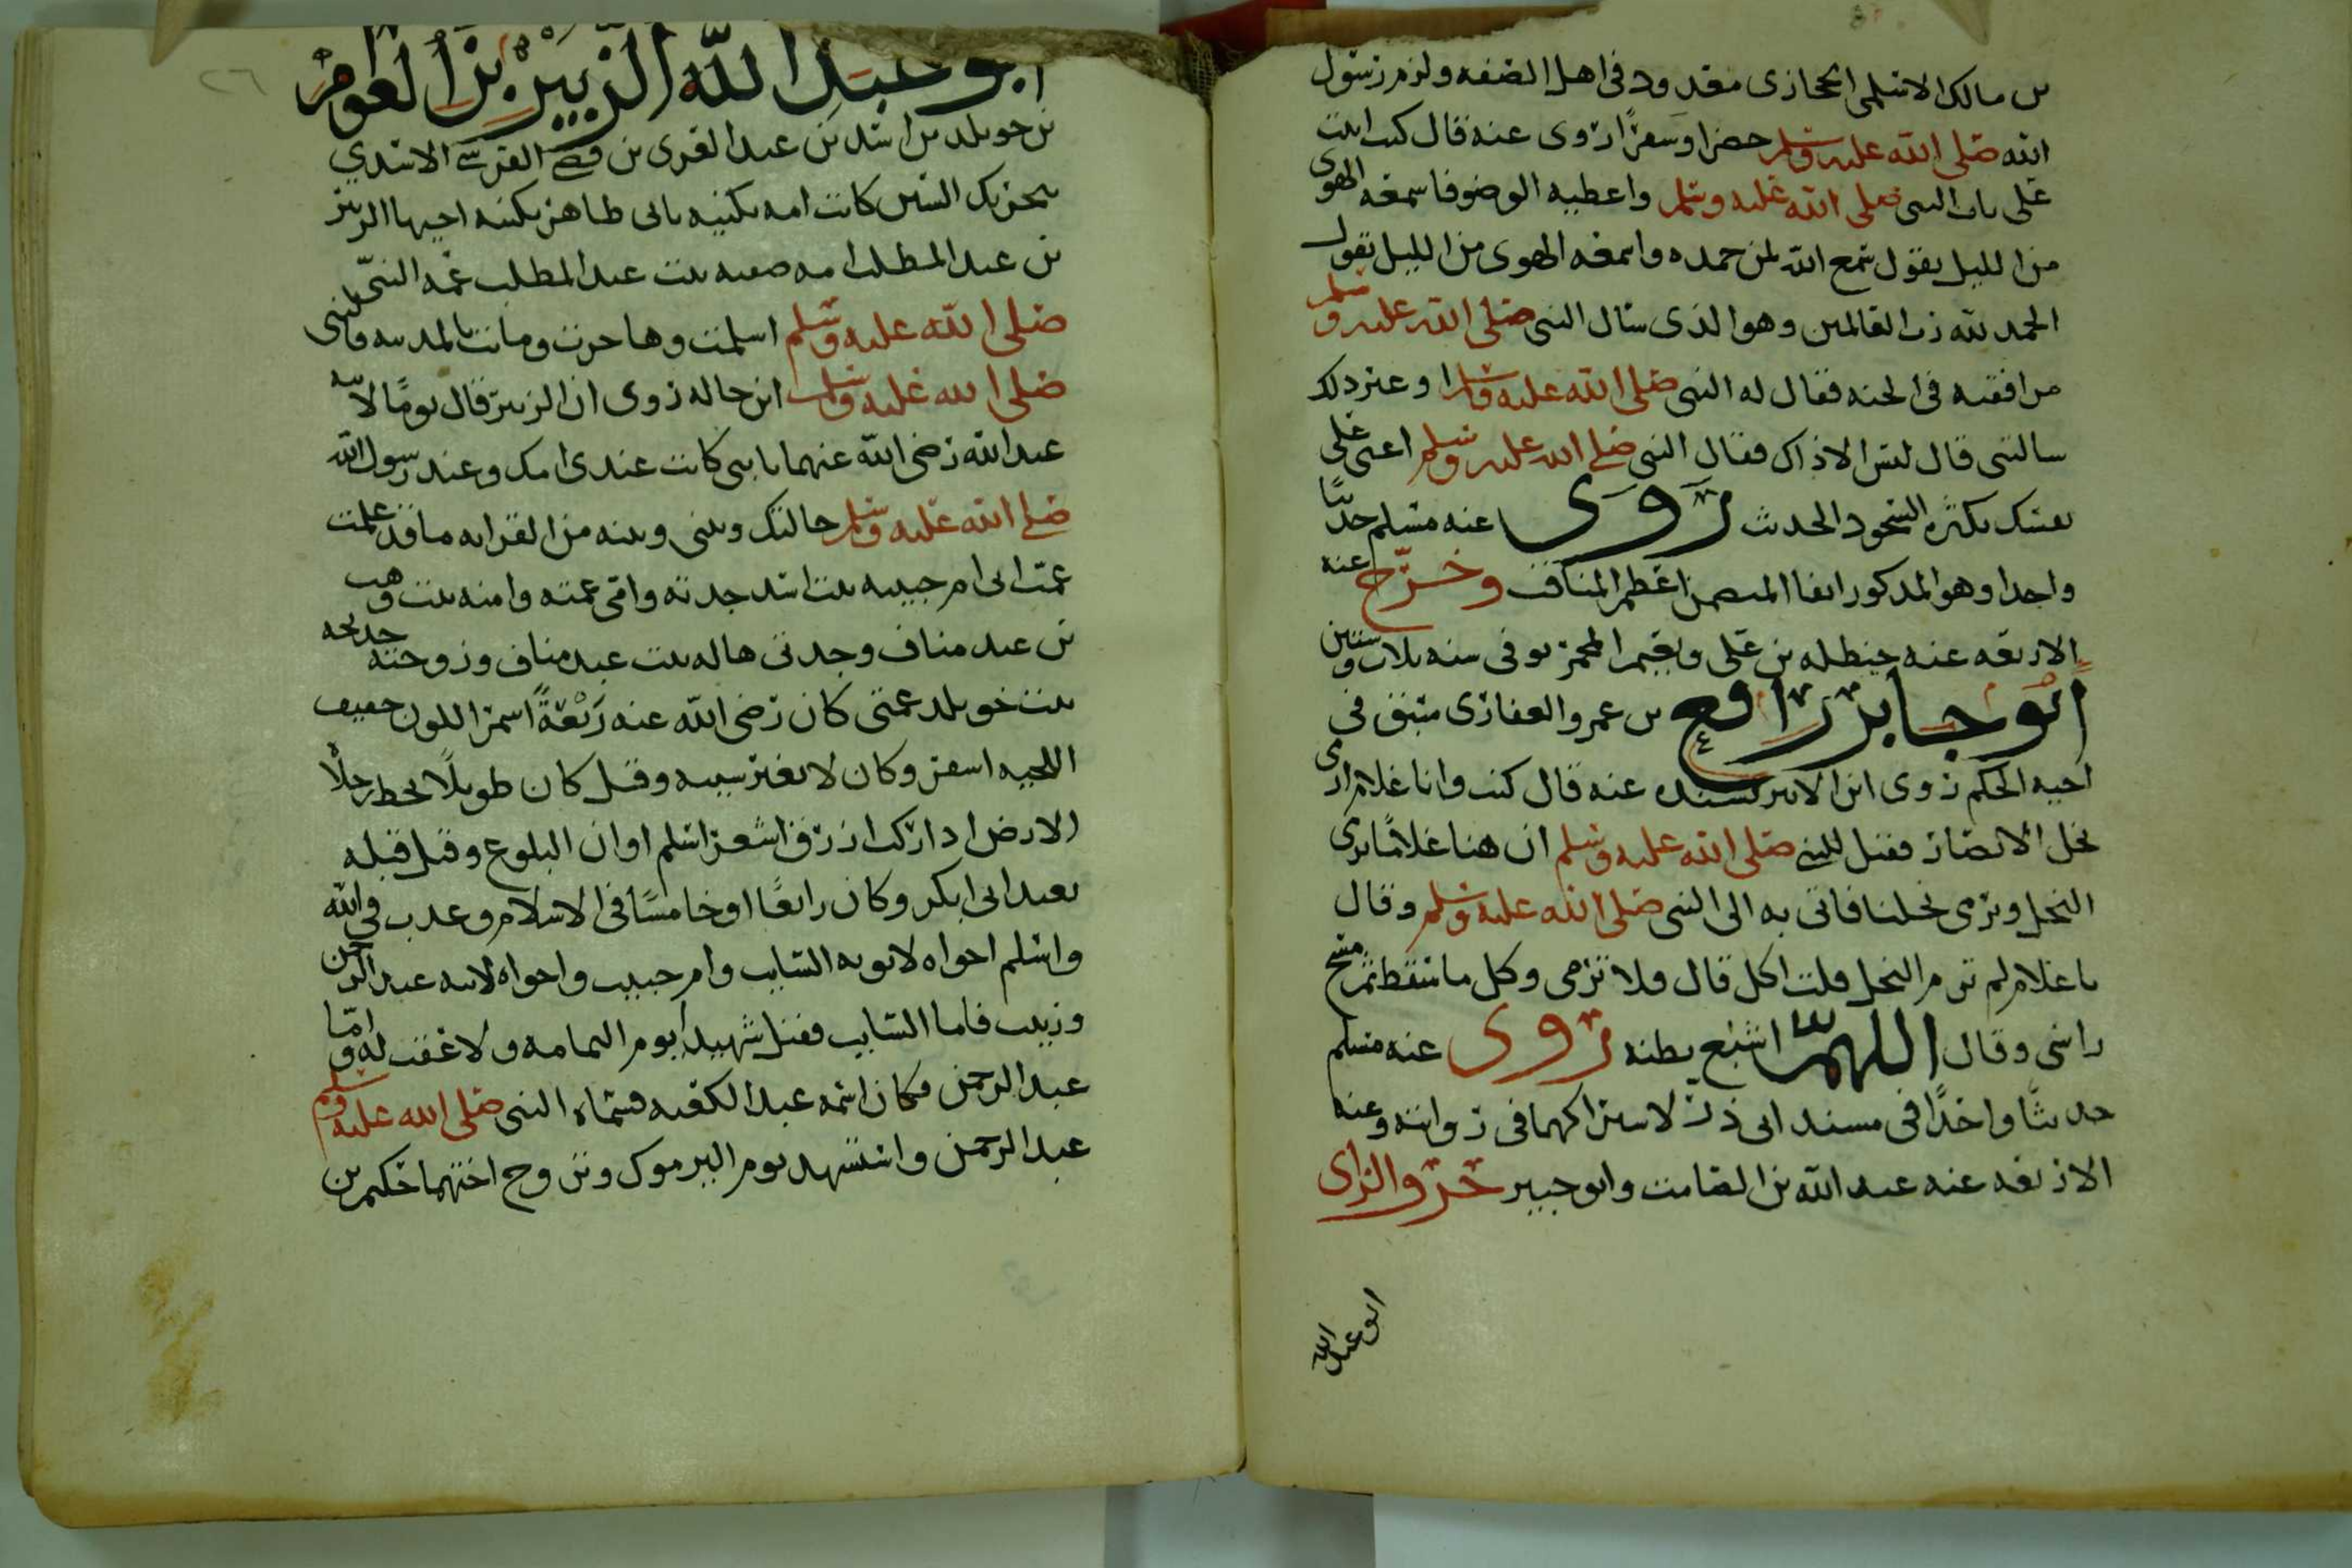 بن مالك الاسلمي الحجازى معدود فى اهل الصفه ولزم رسول
الله صلى الله عليه وسلم حضرا وسفرًا روى عنه قال كنت ابيت
على باب النبى صلى الله عليه وسلم واعطيه الوضو فاسمعه الهوى
من الليل يقول سمع الله لمن حمده واسمعه الهوى من الليل يقول
الحمد لله رب العالمين وهو الذى سال النبى صلى الله عليه وسلم
مرافقته فى الجنه فقال له النبى صلى الله عليه وسلم او غير ذلك
سالتنى قال ليس الا ذاك فقال النبى صلى الله عليه وسلم اعنى على
نفسك بكثره السجود الحديث روى عنه مسلم حديثًا
واحدا وهو المذكور انفا المتضمن اعظم المناقب وخرّج عنه
الاربعه عنه حنظله بن على ونعيم المجمر توفى سنه ثلاث وستين
ابو جابر رافع بن عمرو الغفارى سبق فى
اخيه الحكم روى ابن الاثير بسنده عنه قال كنت وانا غلام ارمى
نخل الانصار فقيل للنبى صلى الله عليه وسلم ان هنا غلامًا يرمى
النخل ويرمى نخلنا فاتى به الى النبى صلى الله عليه وسلم وقال
يا غلام لم ترم النخل قلت اكل قال ولا ترمى وكل ما سقط ثم مسح
راسى وقال اللهمّ اشبع بطنه روى عنه مسلم
حديثًا واحدًا فى مسند ابى ذر لاشتراكهما فى روايته وعنه
الاربعه عنه عبد الله بن الصامت وابو جبير حرف الزاى
ابو عبد الله
٢٦
ابو عبد الله الزبير بن العوام
بن خويلد بن اسد بن عبد العزى بن قصى القرشى الاسدي
كانت امه تكنيه بابى طاهر بكنيه اخيها الزبير
بن عبد المطلب امه صفيه بنت عبد المطلب عمه النبىّ
صلى الله عليه وسلم اسلمت وهاجرت وماتت بالمدينه والنبى
صلى الله عليه وسلم ابن خاله روى ان الزبير قال يومًا لابنه
عبد الله رضى الله عنهما يا بنى كانت عندى امك وعند رسول الله
صلى الله عليه وسلم خالتك وبينى وبينه من القرابه ما قد علمت
عمت ابى ام حبيبه بنت اسد جدته وامى عمته وامنه بنت وهب
بن عبد مناف وجدتى هاله بنت عبد مناف وزوجته خديجه
بنت خويلد عمتى كان رضى الله عنه رَبْعَةً اسمر اللون خفيف
اللحيه اسعر وكان لا يغير شيبه وقيل كان طويلًا تخط رجلاه
الارض اذا ركب ازرق اشعر اسلم اوان البلوع وقيل قبله
بعيد ابى بكر وكان رابعًا او خامسًا فى الاسلام وعذب فى الله
واسلم اخواه لابويه السايب وام حبيب واخواه لابيه عبد الرحمن
وزينب فاما السايب فقتل شهيدا يوم اليمامه ولا عقب له واما
عبد الرحمن فكان اسمه عبد الكعبه فسماه النبى صلى الله عليه وسلم
عبد الرحمن واستشهد يوم اليرموك وتزوج اختهما حكيم بن